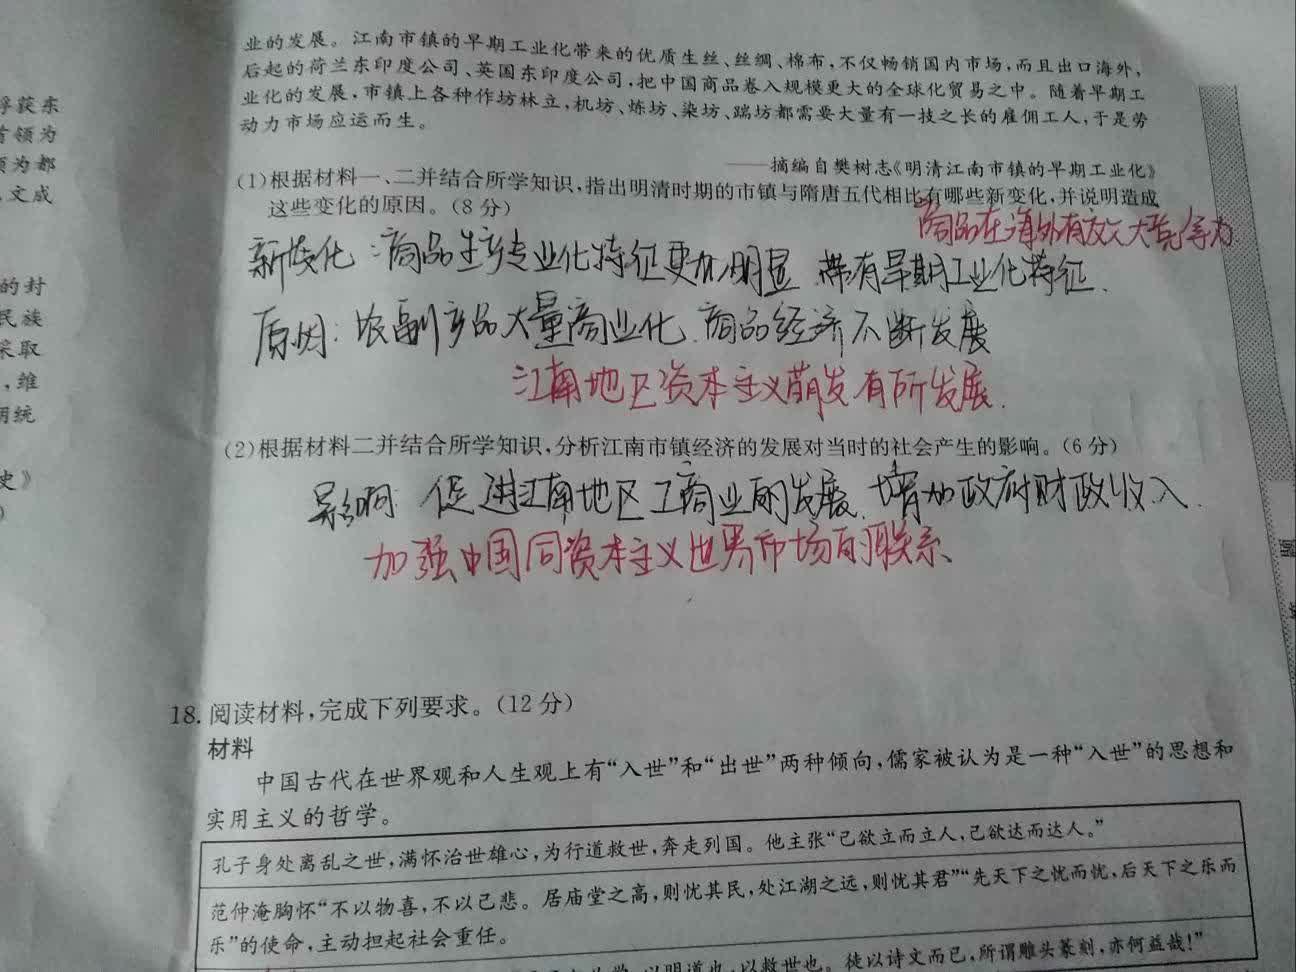 业的发展。江南市镇的早期工业化带来的优质生丝、丝绸、棉布,不仅畅销国内市场,而且出口海外,
后起的荷兰东印度公司、英国东印度公司,把中国商品卷入规模更大的全球化贸易之中。随着早期工
业化的发展,市镇上各种作坊林立,机坊、炼坊、染坊、踹坊都需要大量有一技之长的雇佣工人,于是劳
动力市场应运而生。
——摘编自樊树志《明清江南市镇的早期工业化》
(1)根据材料一、二并结合所学知识,指出明清时期的市镇与隋唐五代相比有哪些新变化,并说明造成
这些变化的原因。(8分)
商品在海外有较大竞争力
新变化:商品生产专业化特征更加明显 带有早期工业化特征.
原因:农副产品大量商业化.商品经济不断发展
江南地区资本主义萌发有所发展.
(2)根据材料二并结合所学知识,分析江南市镇经济的发展对当时的社会产生的影响。(6分)
影响 促进江南地区工商业的发展.增加政府财政收入.
加强中国同资本主义世界市场的联系、
18.阅读材料,完成下列要求。(12分)
材料
中国古代在世界观和人生观上有“入世”和“出世”两种倾向,儒家被认为是一种“入世”的思想和
实用主义的哲学。
孔子身处离乱之世,满怀治世雄心,为行道救世,奔走列国。他主张“己欲立而立人,己欲达而达人。”
范仲淹胸怀“不以物喜,不以己悲。居庙堂之高,则忧其民,处江湖之远,则忧其君”“先天下之忧而忧,后天下之乐而
乐”的使命,主动担起社会重任。
以明道也,以救世也。徒以诗文而已,所谓雕头篆刻,亦何益哉!”
俘获东
首领为
颁为都
,文成
的封
民族
采取
,维
明统
史》
)